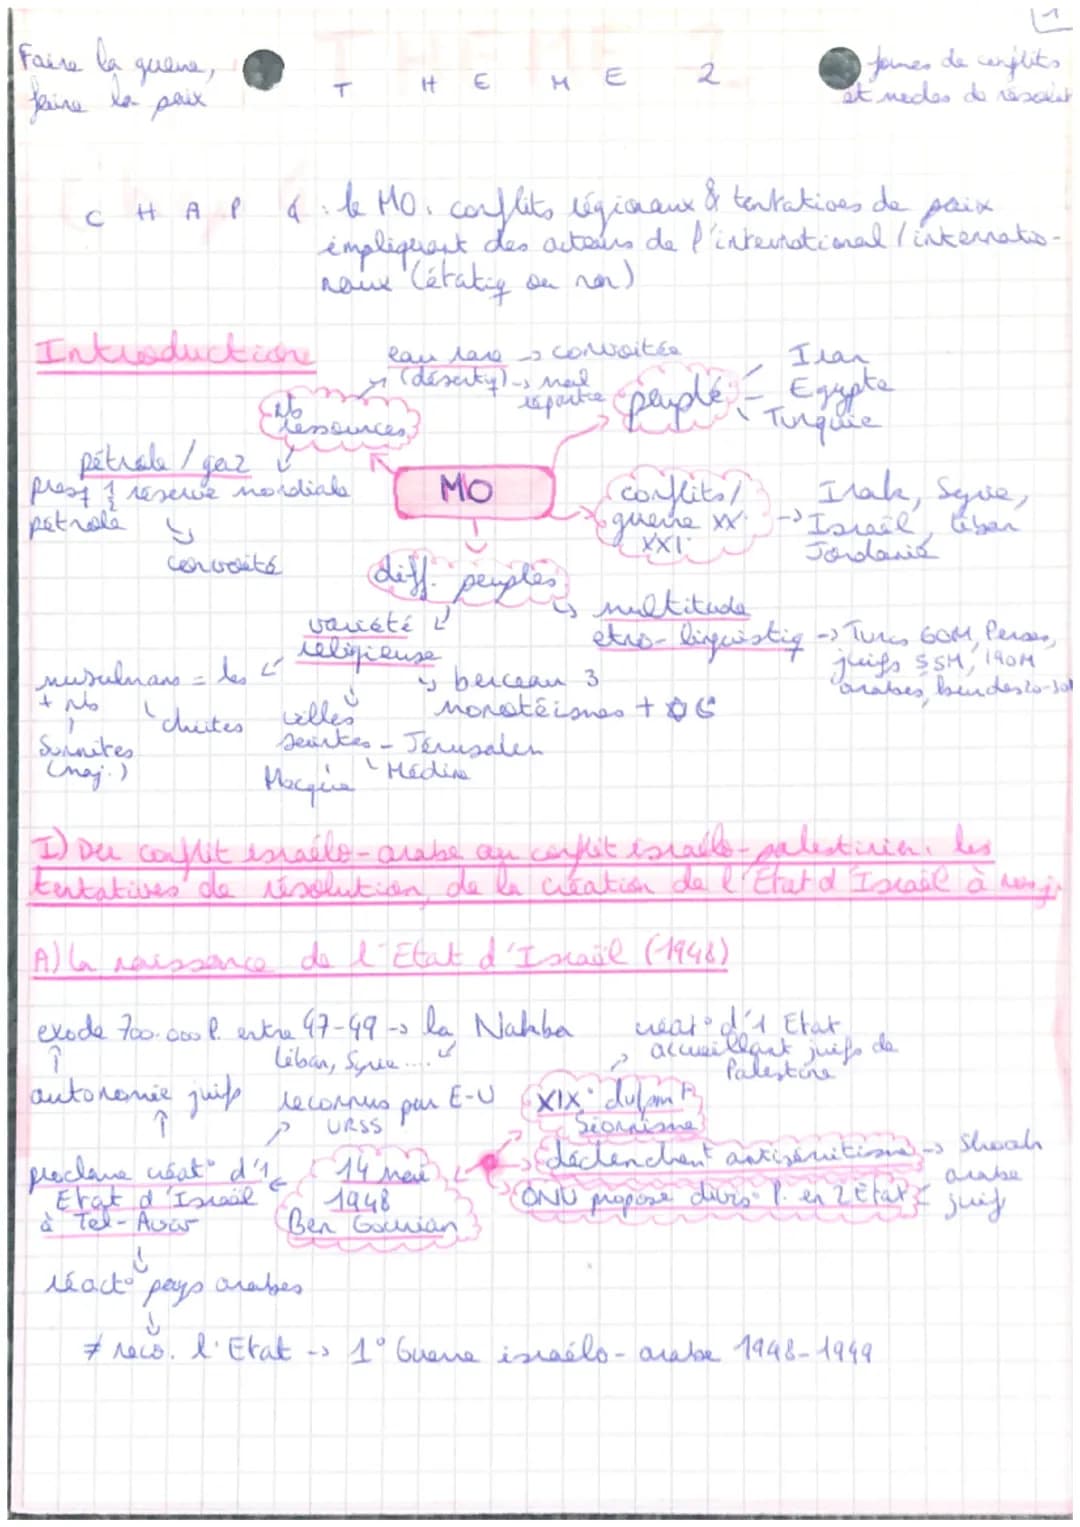 1
Faire la guerre,
faire la paix
T H E M E 2
formes de conflits
et modes de résolut
C H A P 4 : le MO : conflits régionaux & tentatives de paix
impliquant des acteurs de l'international / internatio-
naux (étatiq ou non)
Introduction
eau rare -> convoitée
(désertiq) -> mal
répartie
nb
ressources
pétrole / gaz
presq 1/2 réserve mondiale
pétrole
convoité
MO
peuplé
Iran
Egypte
Turquie
conflits /
guerre XX°
XXI°
-> Irak, Syrie,
Israël, Liban
Jordanie
diff. peuples
multitude
etno-linguistiq -> Turcs 60M, Perses,
juifs 5,5M, 190M
arabes, kurdes 20-30M
variété
religieuse
berceau 3
monotéismes + ✡ ☪
musulmans = les
+ nb
chiites
Sunnites
(maj.)
villes
saintes - Jérusalem
Médine
Mecque
I) Du conflit israélo-arabe au conflit israélo-palestinien : les
tentatives de résolution, de la création de l'Etat d'Israël à nos j.
A) La naissance de l'Etat d'Israël (1948)
exode 700.000 P. entre 47-49 -> la Nakba
Liban, Syrie ....
créat° d'1 Etat
accueillant juifs de
Palestine
autonomie juifs
reconnus par E-U
URSS
XIX° dvlpmt
Sionnisme
proclame créat° d'1
Etat d'Israël
à Tel-Aviv
14 mai
1948
Ben Gourian
déclenchent antisémitisme -> Shoah
ONU propose divis° P. en 2 Etat
arabe
juif
réact° pays arabes
≠ reco. l'Etat -> 1° Guerre israélo-arabe 1948-1949